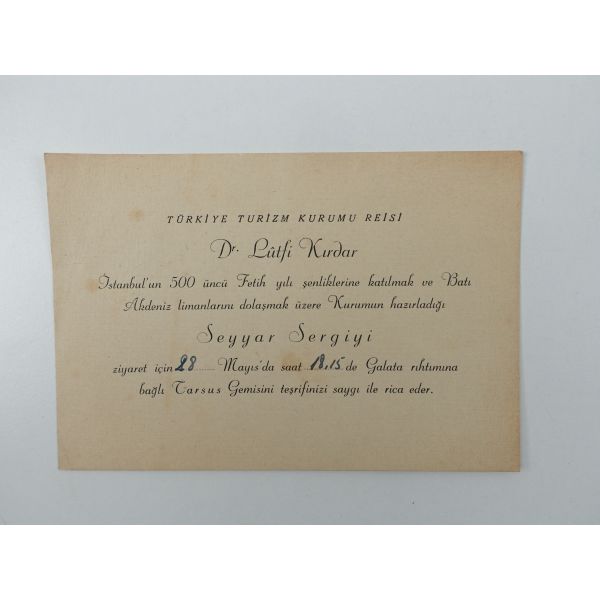 TÜRKİYE TURİZM KURUMU REİSİ
Dr. Lûtfi Kırdar
İstanbul'un 500 üncü Fetih yılı şenliklerine katılmak ve Batı
Akdeniz limanlarını dolaşmak üzere Kurumun hazırladığı
Seyyar Sergiyi
ziyaret için 28 ...... Mayıs'da saat ..18.15.. de Galata rıhtımına
bağlı Tarsus Gemisini teşrifinizi saygı ile rica eder.